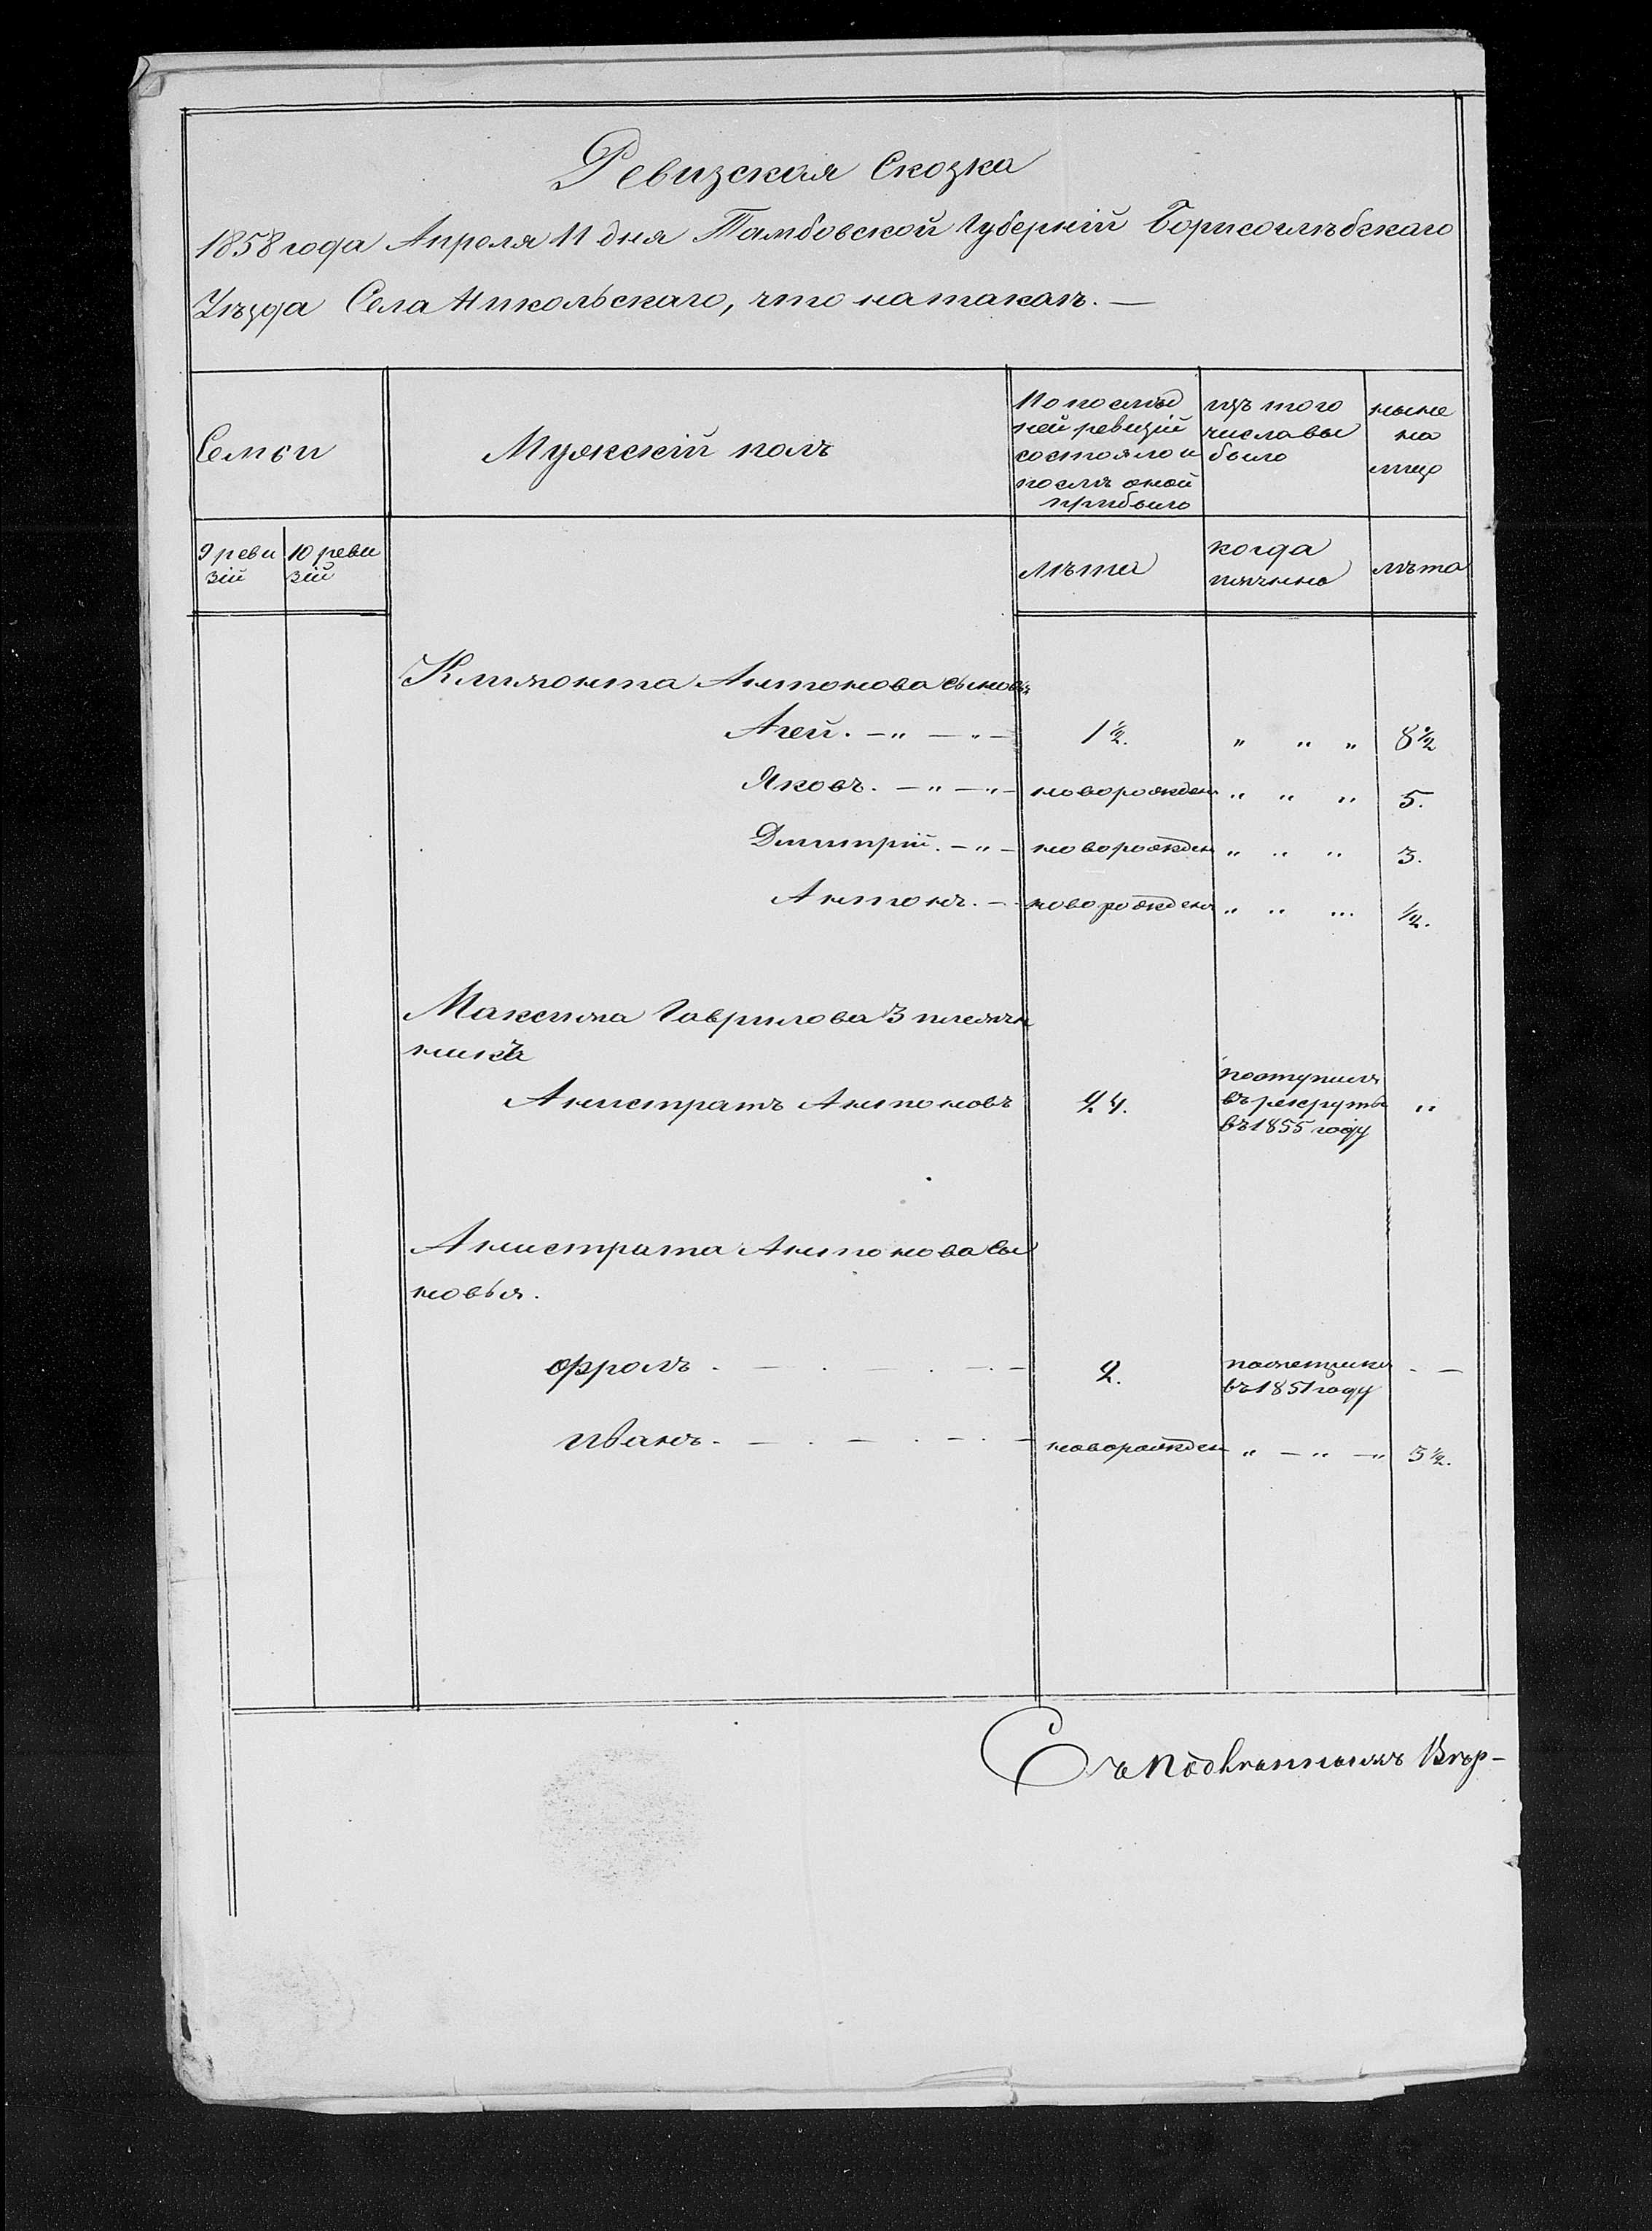 Ревизская Сказка
1858 года Апреля 11 дня Тамбовской Губерніи Борисоглѣбскаго
Уѣзда Села Никольскаго, что натакаѣ. —
Семьи
Мужскій полъ
По послѣд
ней ревизіи
состояло и
послѣ оной
прибыло
изъ того
числа вы
было
ныне
на
лицо
9 реви
зіи
10 реви
зіи
лѣта
когда
имянно
лѣта
Климонта Антонова сыновья
Агей. — „ — „ — 1 ½. „ „ „ 8 ½
Яковъ. — „ — „ — новорожденъ „ „ „ 5.
Дмитрій. — „ — новорожден „ „ „ 3.
Антонъ. — новорожденъ „ „ „ ½.
Максима Гаврилова 3 племян
никъ
Анистратъ Антоновъ 24. „
поступилъ
въ рекруты
въ 1855 году
Анистрата Антонова сы
новья.
Фролъ. — . — . — . — 2. . —
въ 1851 году
Иванъ. — . — . — . — новорожден „ — „ — „ 3 ½.
Съ подлиннымъ Вѣр-